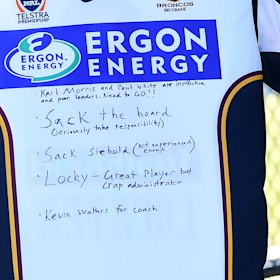 NRL
TELSTRA
PREMIERSHIP
BRONCOS
BRISBANE
ERGON.
ENERGY
ERGON
ENERGY
· Karl Morris and Paul White are ineffective
and poor leaders. Need to GO!!
· Sack the board
(seriously take responsibility)
· Sack Siebold (not experienced
enough)
· Locky - Great Player but
crap administrator
· Kevin Walters for coach